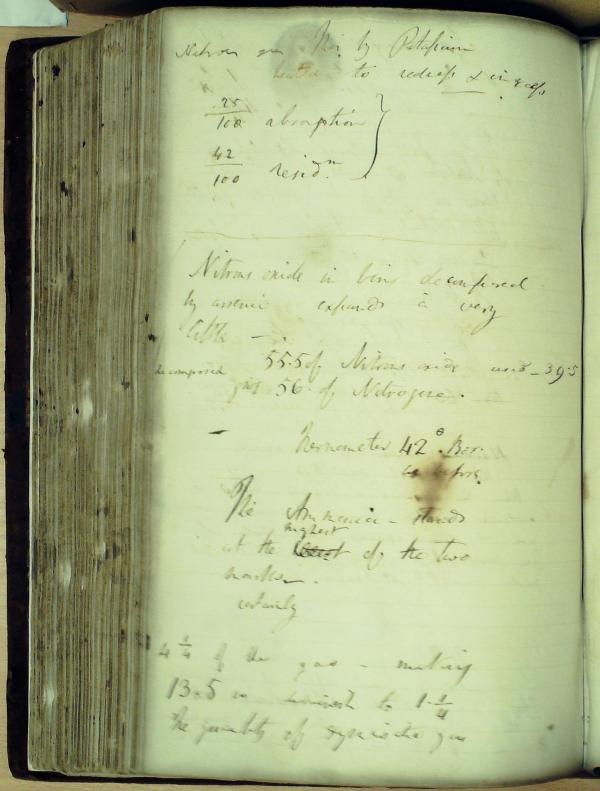 Nitrous gas by Potassium
heated to redness & in excess
.25
100 absorption
42
100 resid.m
Nitrous oxide in being decomposed
by arsenic expands a very
little —
decomposed 55.5 of Nitrous oxide 39.5
gas 56. of Nitrogene.
Thermometer 42°. Bar.
as before
The Ammonia - stands
highest
at the of the two
marks.
certainly
4 1/4 of the gas - making
13.5 to 1 1/4
the quantity of gas